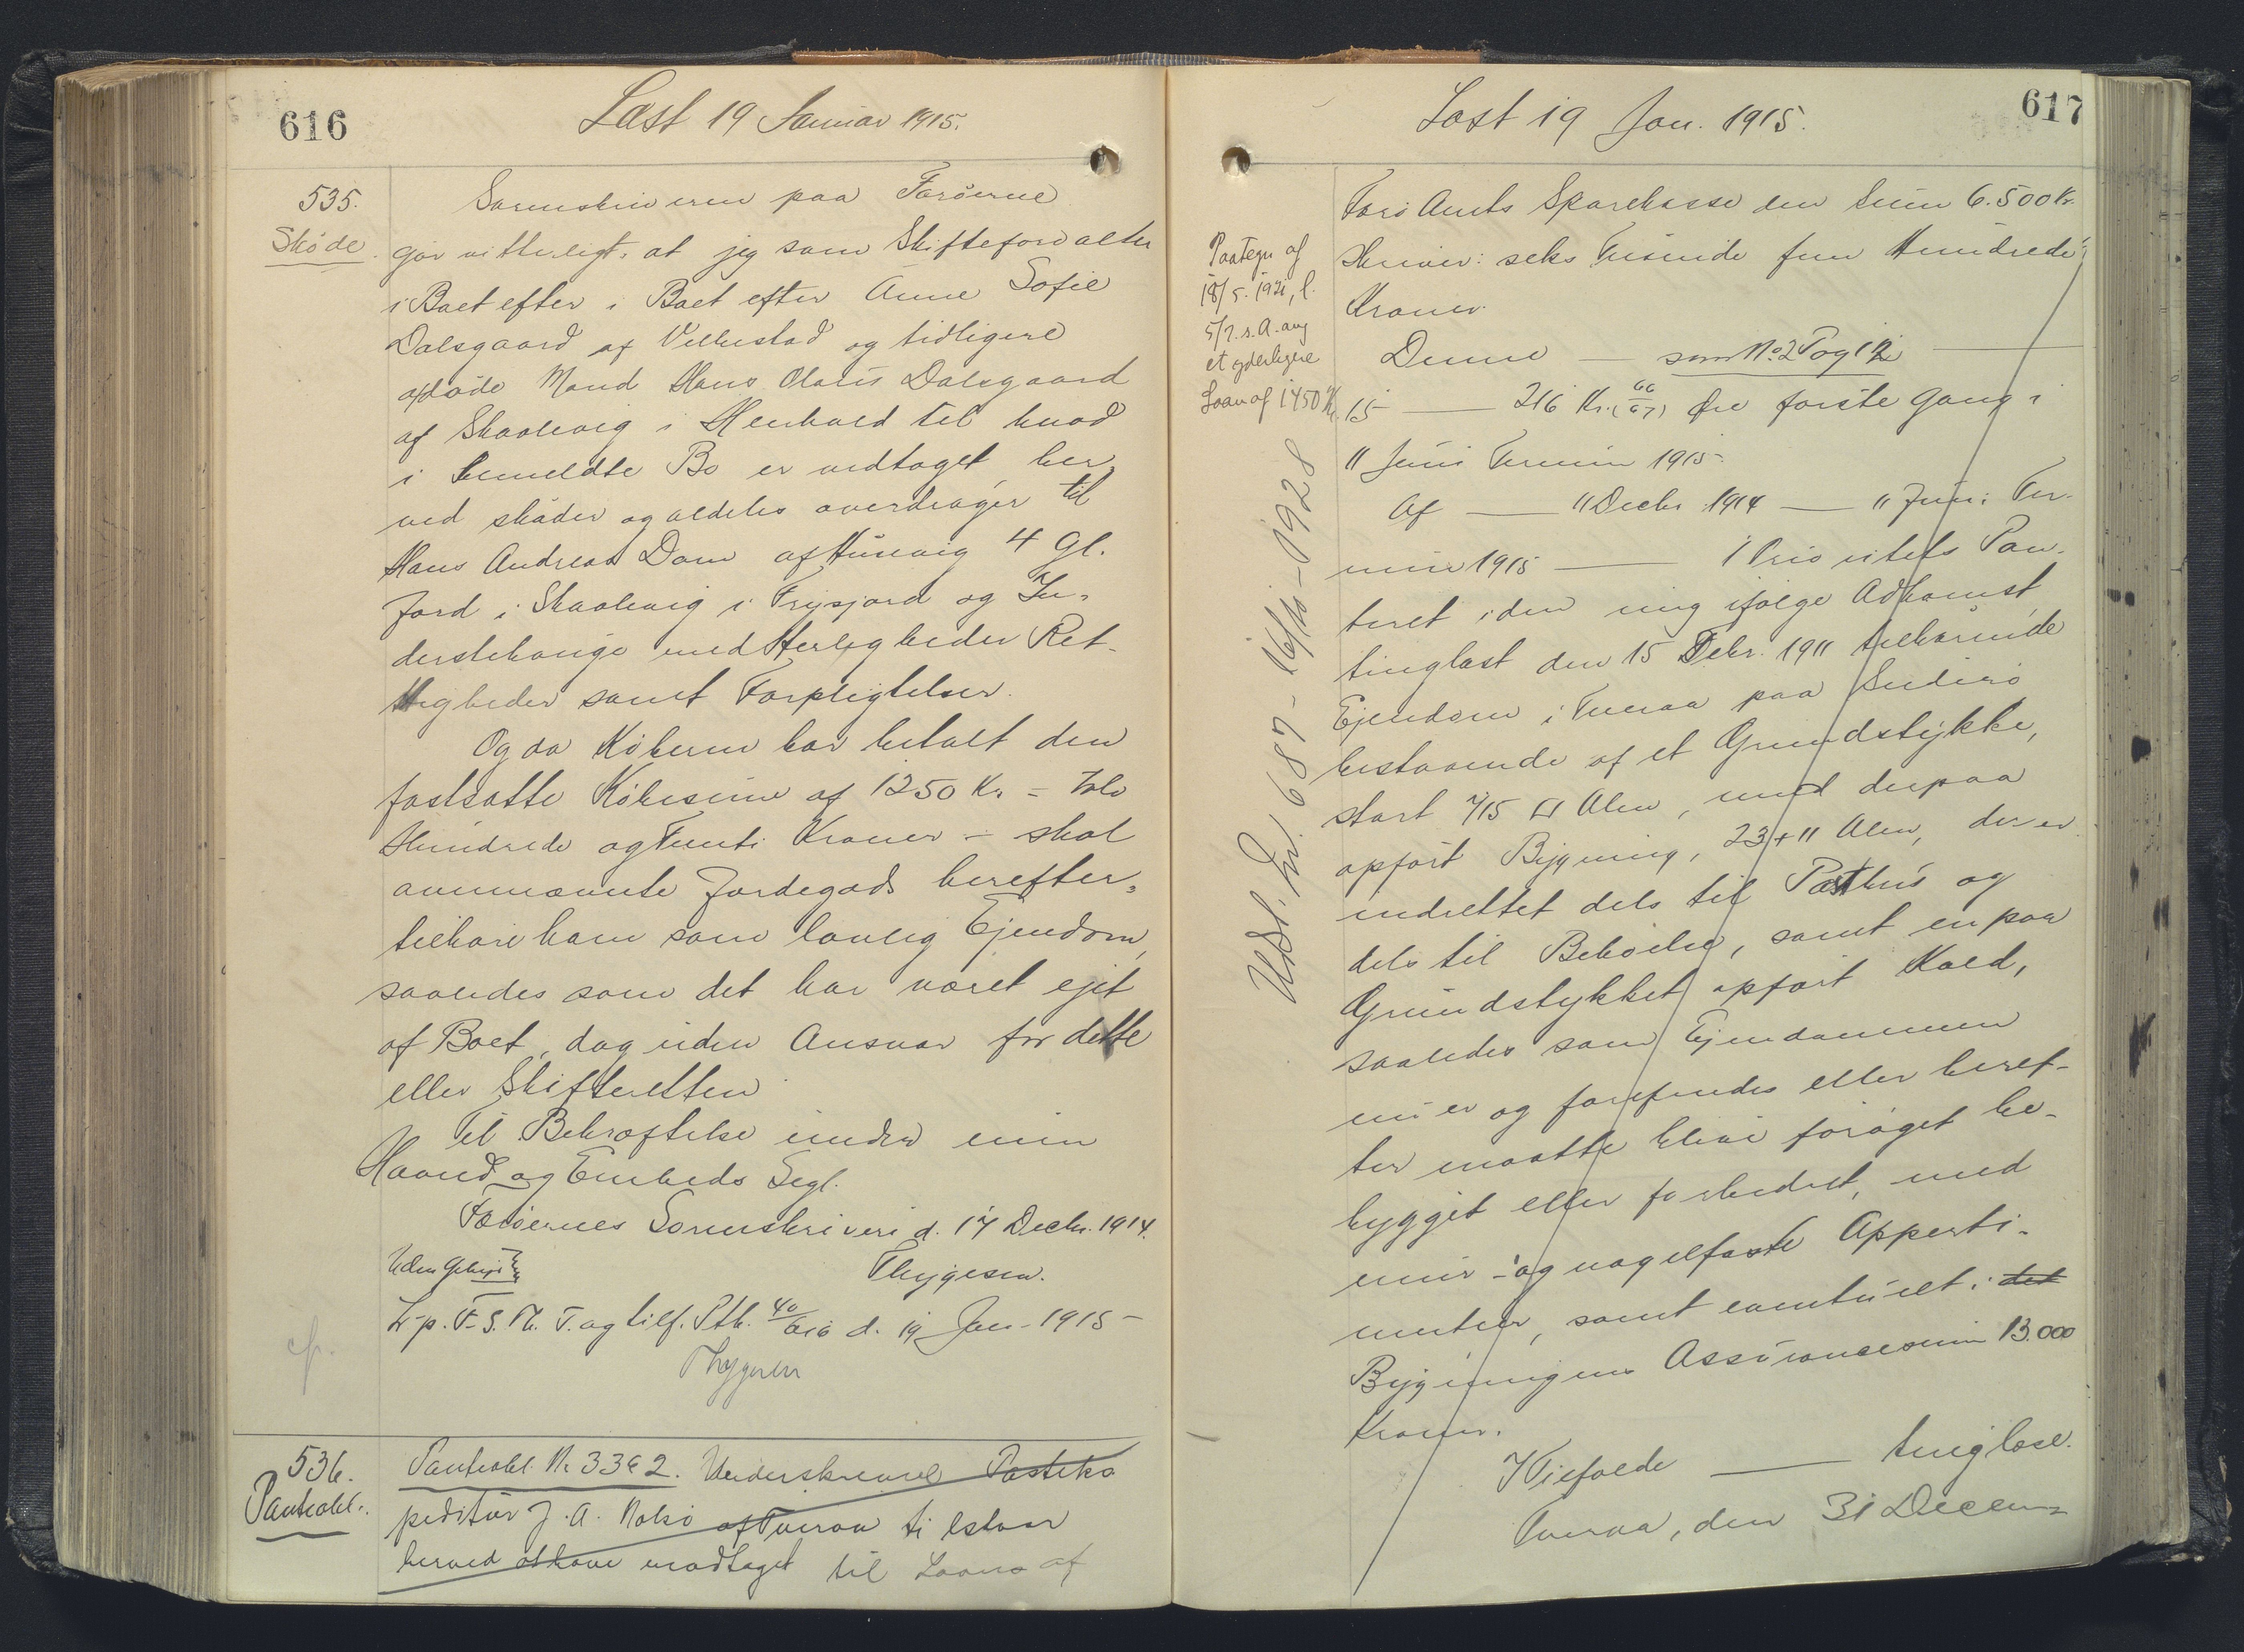 616
Læst 19 Januar 1915.
535.
Skøde
Sorenskriveren paa Færøerne
gør vitterligt, at jeg som Skifteforvalter
i Boet efter i Boet efter Anne Sofie
Dalsgaard af Velbestad og tidligere
afdøde Mand Hans Olavus Dalsgaard
af Skaalevig i Henhold til hvad
i bemeldte Bo er vedtaget her
ved skøder og aldeles overdrager til
Hans Andreas Dam af Husevig 4 Gl.
Jord i Skaalevig i Trøjsjord og In-
derstehauge med Herligheder Ret-
tigheder samt Forpligtelser.
Og da Køberen har betalt den
fastsatte Købesum af 1250 Kr. = Tolv
Hundrede og Femti Kroner - skal
ovennævnte Jordegods herefter
tilhøre ham som lovlig Ejendom,
saaledes som det har været ejet
af Boet, dog uden Ansvar for dette
eller Skifteretten
Til Bekræftelse under min
Haand og Embeds Segl.
Færøernes Sorenskriveri d. 17 Decbr. 1914.
Uden Gebyr
Thygesen.
L. p. F. S. Th. T. og tilf. Ptb. 40/616 d. 19 Jan - 1915 -
Thygesen
cf.
536.
Panteobl.
Panteobl. Nr 3362. Underskrevne Posteks
peditør J. A. Nolsø af Tveraa tilstaar
herved at have modtaget til Laans af
617
Læst 19 Jan. 1915.
Færø Amts Sparekasse den Sum 6.500 Kr.
Skriver: seks Tusinde fem Hundrede
Kroner.
Denne — som No. 2 Pag 12 —
15 — 216 Kr. (66/67) Øre første Gang i
11 Juni Termin 1915.
Af — 11 Decbr. 1914 — 11 Juni Ter-
min 1915 — 1 Prioritets Pan-
teret i den mig ifølge Adkomst,
tinglæst den 15 Febr. 1911 tilhørende
Ejendom i Tveraa paa Suderø
bestaaende af et Grundstykke,
stort 715 □ Alen, med derpaa
opført Bygning, 23 + 11 Alen, der er
indrettet dels til Posthus og
dels til Beboelse, samt en paa
Grundstykket opført Kald,
saaledes som Ejendommen
nu er og forefindes eller heref-
ter maatte blive forøget be-
bygget eller forbedret, med
mur- og nagelfaste Apperti-
nentier, samt eventuelt i det
Bygningens Assurancesum 13.000
Kroner.
I Tilfælde — tinglæse.
Tveraa, den 31 Decem-
Paategn af
18/5. 1921, l.
5/7. s. A. ang
et yderligere
Laan af 1450 Kr.
Udsl. Lv. 687 - 16/10 - 1928